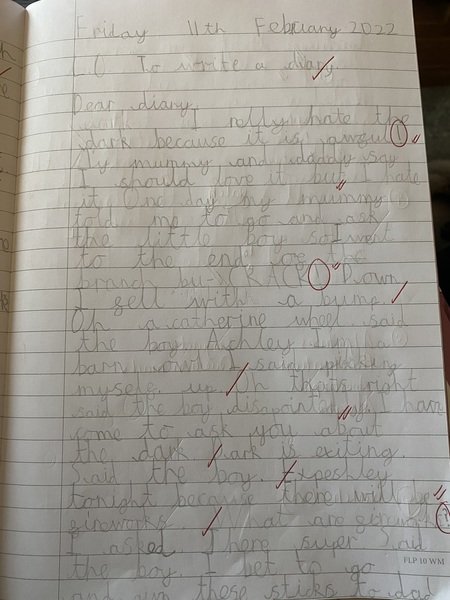 Friday 11th February 2022
L.O To write a diary.
Dear diary,
I rolly hate the
dark because it is
My mummy and daddy say
I should love it but I hate
it. One day my mummy
told me to go and ask
the little boy so I went
to the end ove the
branch but CRACK! Down
I fell with a bump.
Oh a catherine wheel said
the boy. Achley I'm a
barn owl I said picking
myself up. Oh thats right
said the boy I have
come to ask you about
the dark. Dark is exiting.
Said the boy. Expeshley
tonight because there will be
fireworks. What are
I asked. There super said
the boy. I bet to go
these sticks to dad
FLP 10 WM